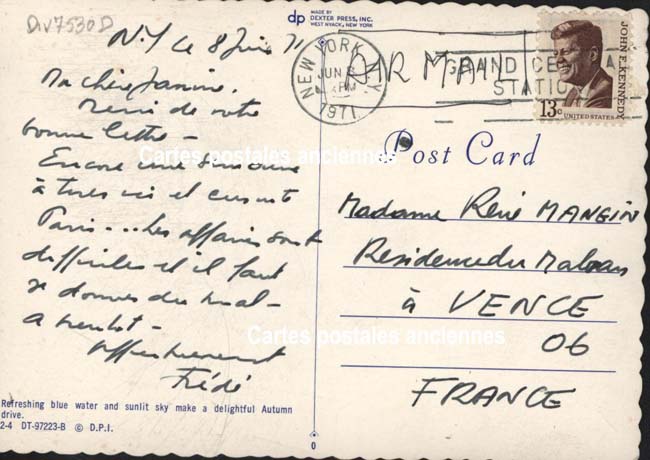 Div7530D
dp
MADE BY
DEXTER PRESS, INC.
WEST NYACK, NEW YORK
N.Y Le 8 Juin 71
Ma chère Janine,
Merci de votre
bonne lettre -
Encore une semaine
à tirer ici et ensuite
Paris... Les affaires sont
difficiles et il faut
se donner du mal -
a bientot -
affectueusement
Frédé
Refreshing blue water and sunlit sky make a delightful Autumn
drive.
2-4 DT-97223-B © D.P.I.
NEW YORK, N.Y.
JUN
PM
1971
AIR MAIL
GRAND CE
STATIO
JOHN F. KENNEDY
13c
UNITED STATES
Post Card
Madame René MANGIN
Residence du
à VENCE
06
FRANCE
0
Cartes postales anciennes
Cartes postales anciennes